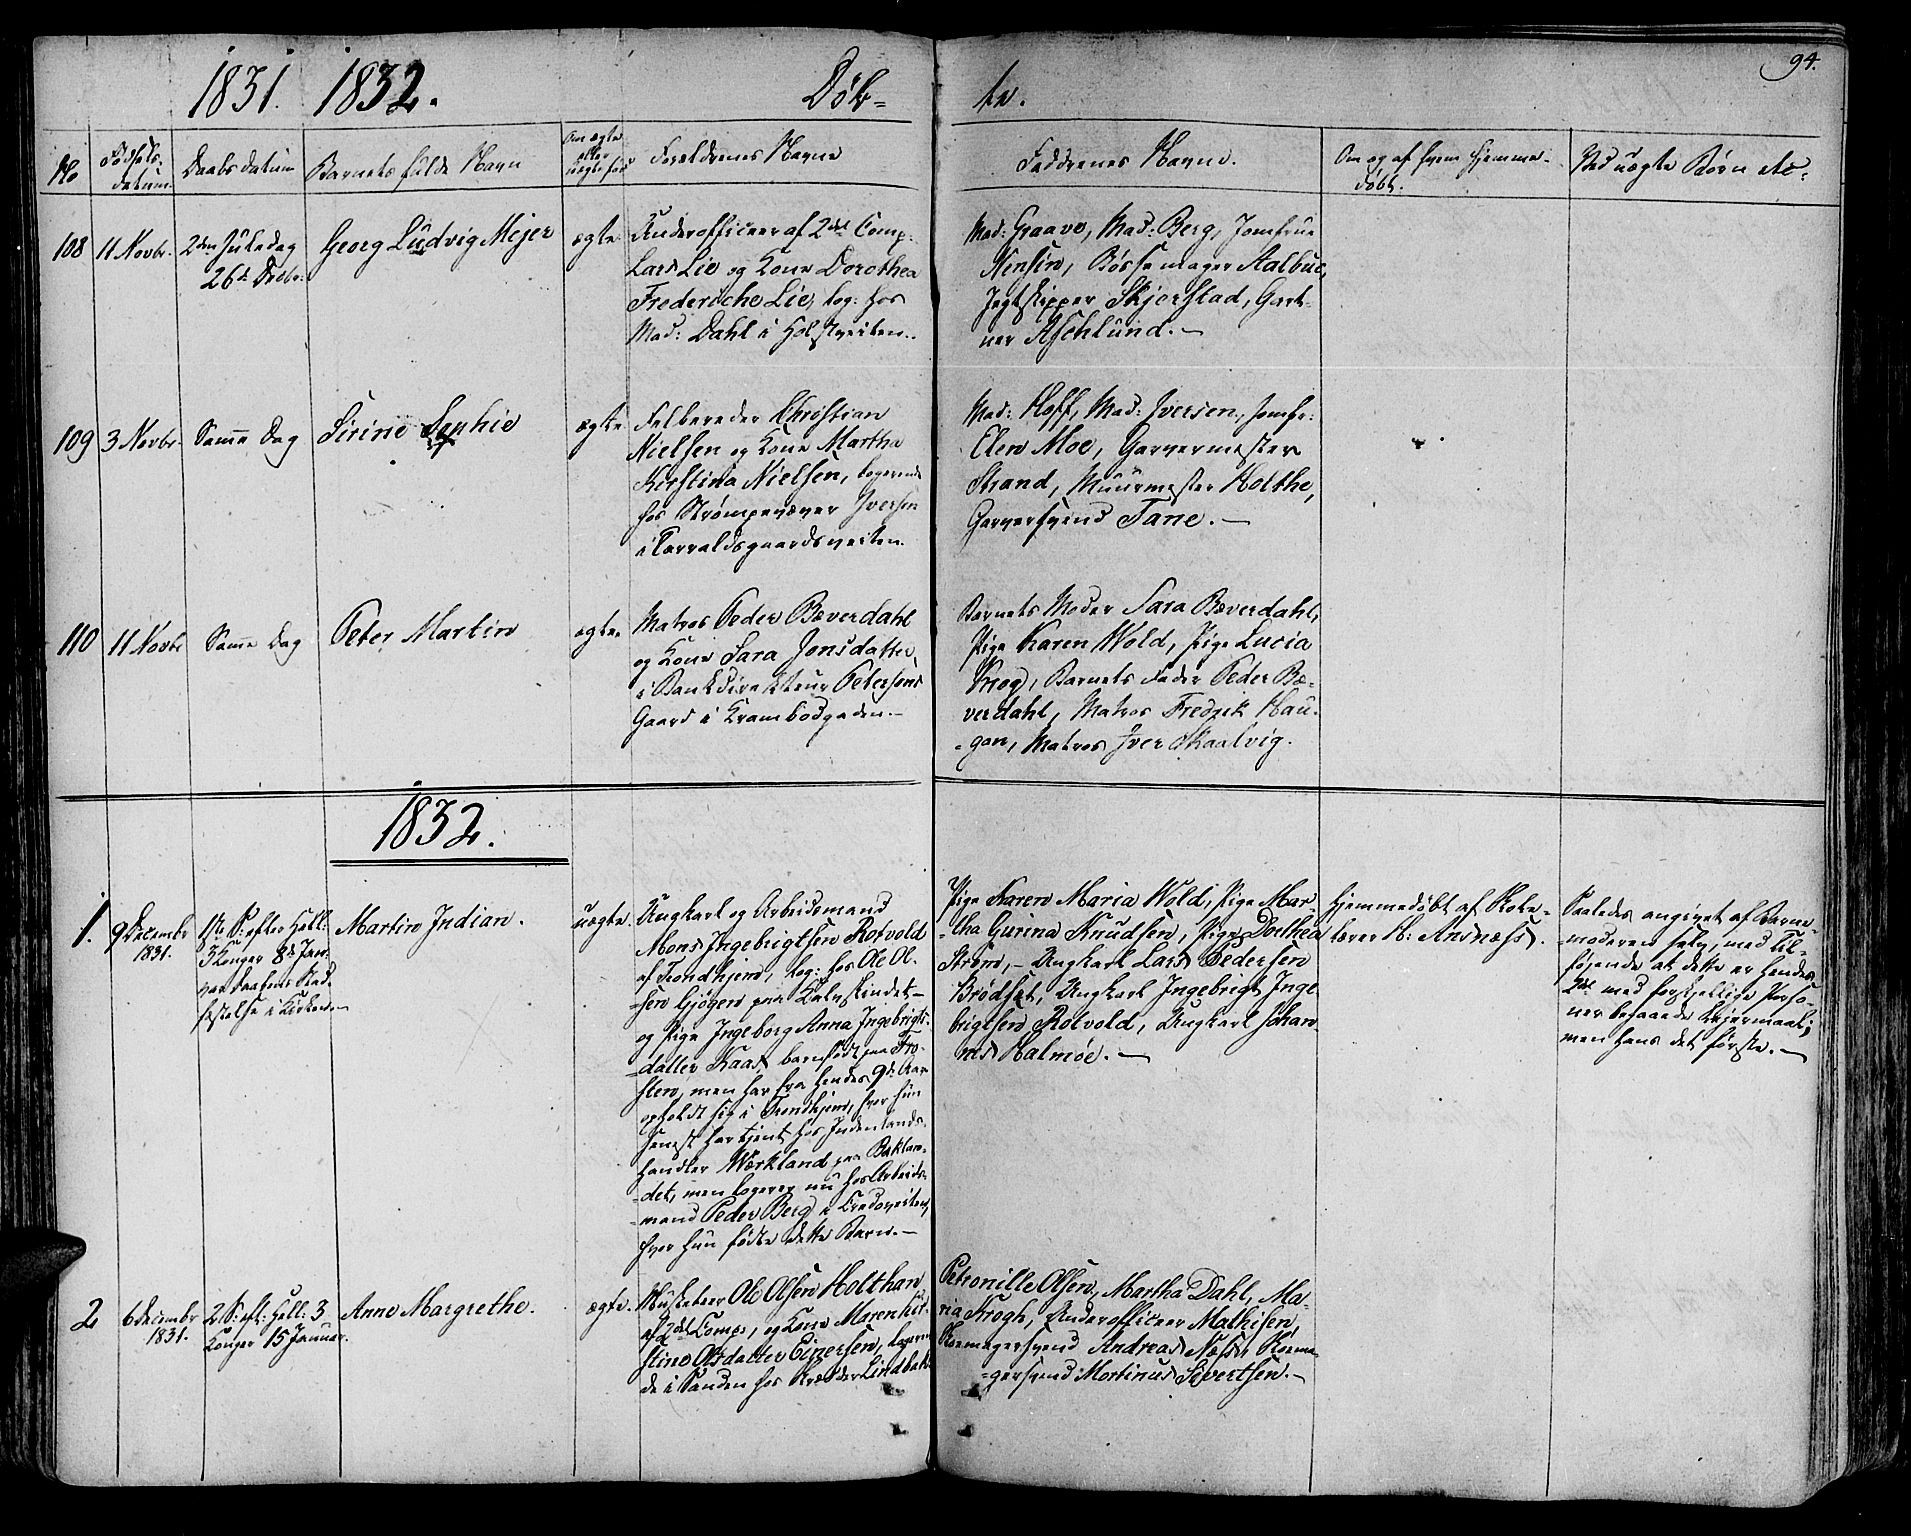 94.
1831. 1832. Døb= te.
No
Fødsels-
datum
Daabsdatum
Barnets fulde Navn
Om ægte
eller
uægte fød
Forældrenes Navne
Faddrenes Navne.
Om og af hvem hjemme-
døbt.
Ved uægte Børn etc:
108
11 Novbr.
2den Juledag
26de Decbr.
Georg Ludvig Mejer
ægte
Underofficeer af 2det Comp:
Lars Lie og Kone Dorothea
Frederiche Lie, log: hos
Mad: Dahl i Holstveiten.
Mad: Graave, Mad: Berg, Jomfrue
Nensin, Bøssemager Aalbue,
Jegtskipper Skjerstad, Gart-
ner Aschlund. —
109
3 Novbr
Samme Dag
Sirine Sophie
ægte
Feldbereder Christian
Nielsen og Kone Martha
Kirstina Nielsen, logerende
hos Strømpevæver Iversen
i Torvaldsgaardsveiten.
Mad: Hoff, Mad: Iversen, Jomfr:
Elen Moe, Garvermester
Strand, Muurmester Holthe,
Garversvend Tane. —
110
11 Novbr
Samme Dag
Peter Martin
ægte
Matros Peder Bæverdahl
og Kone Sara Jonsdatter,
i Bankdirekteur Petersens
Gaard i Krambodgaden. —
Barnets Moder Sara Bæverdahl,
Pige Karen Wold, Pige Lucia
Krog, Barnets Fader Peder Bæ-
verdahl, Matros Fredrik Hau-
-gan, Matros Iver Skaalvig.
1832.
1.
9 Decembr
1831.
1ste S: efter Hell:
3 Konger 8de Jan:
var Daabens Stad-
fæstelse i Kirken. —
Martin Indian.
uægte.
Ungkarl og Arbeidsmand
Mons Ingebrigtsen Rotvold
af Trondhjem, log: hos Ole Ol-
-sen Gjøgen paa Kalvskindet —
og Pige Ingeborg Anna Ingebrigts-
-datter Kaas, barnfødt paa Fro-
sten, men har fra hendes 9de Aar
opholdt sig i Trondhjem, hvor hun
senest har tjent hos Indenlands-
handler Wærkland paa Baklan-
-det, men logerer nu hos Arbeids-
-mand Peder Berg i Credoveiten,
hvor hun fødte dette Barn. —
Pige Karen Maria Wold, Pige Mar-
-tha Gurina Knudsen, Pige Dorthea
Strøm, — Ungkarl Lars Pedersen
Brødset, Ungkarl Ingebrigt Inge-
brigtsen Rotvold, Ungkarl Johan-
nes Halmøe. —
Hjemmedøbt af
H: Andnæss.
Saaledes angivet af Barne-
-moderen selv, med Til-
føiende at dette er hendes
2det med forskjellige Perso-
ner begaaede Leiermaal;
men hans det første. —
2
6 Decembr
1831.
2 S: eft: Hell: 3
Konger 15 Januar.
Anne Margrethe.
ægte.
Musketeer Ole Olsen Holthan
af 2det Comp:, og Kone Maren Kir-
stine Olsdatter Einersen, logeren-
de i Sanden hos Lindbak
Petronille Olsen, Martha Dahl, Ma-
ria Krogh, Underofficeer Mathisen,
Andreas Næss,
-gersvend Martinus Sivertsen. —